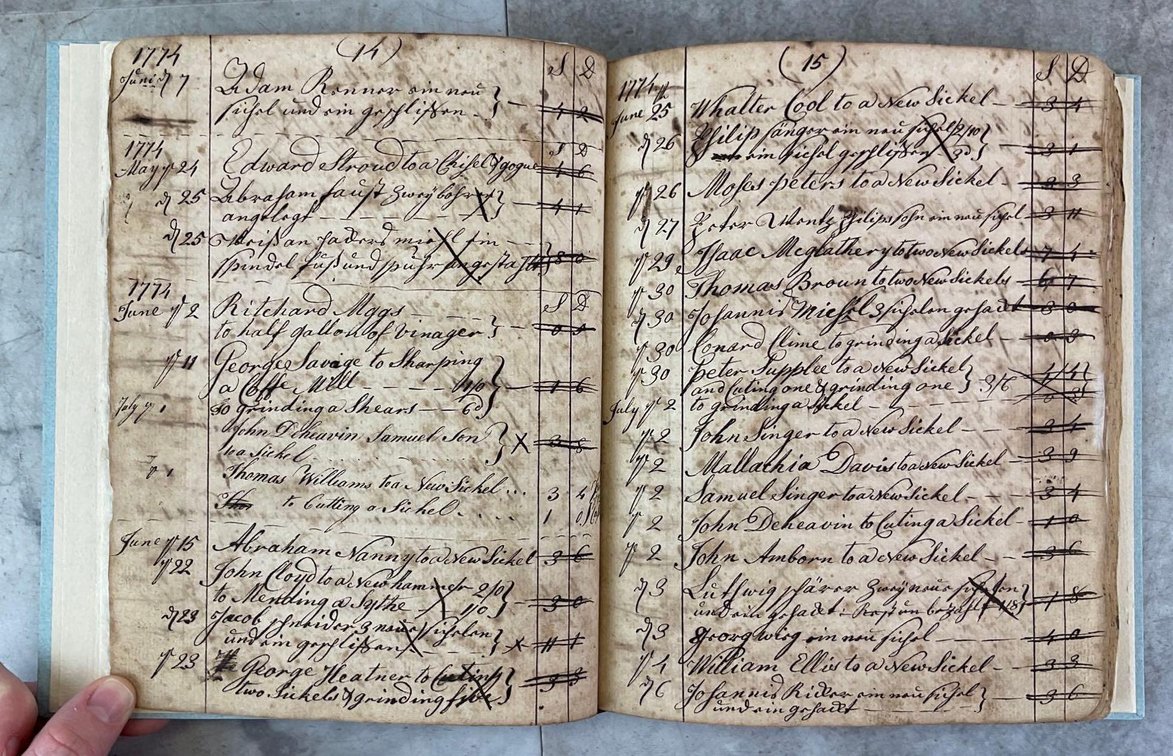 1774 (14) S D
Juni d 7 Adam Renner ein neu
sichel und ein geschlissen 4 2
1774 S D
May ye 24 Edward Stroud to a Chisel & gogue 4 6
d 25 Abraham faust Zwey bohr
angelegt 4 1
d 25 ein
spindel fuß und
1774 S D
June ye 2 Ritchard Moggs
to half gallon of Vinager 0
ye 11 George Savige to Sharping
a Coffe Mill 1/0 1 6
so grinding a Shears — 6d
July ye 1 John Deheavin Samuel Son
to a Sickel X 3 8
Do 1 Thomas Williams to a New Sickel 3
to Cutting a Sickel 1
June ye 15 Abraham Nanny to a New Sickel 3 6
ye 22 John Cloyd to a New hammer 2/0
to Mending a Sythe 1/0 3 0
d 23 Jacob schneider 3 neue sichelen
und ein geschlissen X 11
ye 23 George Heatner to Cuting
two Sickels & grinding 3 8
(15) S D
1774
June 25 Whalter Cool to a New Sickel 3 4
d 26 Philip sänger ein neu sichel 2/10
ein sichel geschlissen 3d 3 1
ye 26 Moses peters to a New Sickel 3 3
d 27 Peter Wentz Philips sohn ein neu sichel 3 11
ye 29 Isaac Meglathery to two New Sickels 7 4
ye 30 Thomas Broun to two New Sickels 6 7
d 30 Johannis 3 sichelen gehackt 3 0
ye 30 Conard Clime to grinding a Sickel 0 3
ye 30 peter Supplee to a New Sickel
and Cuting one & grinding one 3/6
July ye 2 to grinding a Sickel
ye 2 John Singer to a New Sickel 3 4
ye 2 Mallachia Davis to a New Sickel 3 9
ye 2 Samuel Singer to a New Sickel 3 4
ye 2 John Deheavin to Cuting a Sickel 1 0
ye 2 John Amborn to a New Sickel 3 6
d 3 Luthwig Zwey neue sichlen
und ein gehackt 7 8
d 3 georg ein neu sichel 4 0
ye 4 William Ellis to a New Sickel 3 3
d 6 Johannis Rider ein neu sichel
und ein gehackt 3 6